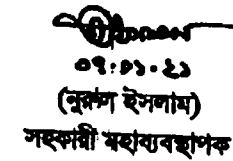 ০৭.০১.২১
(নুরুল ইসলাম)
সহকারী মহাব্যবস্থাপক